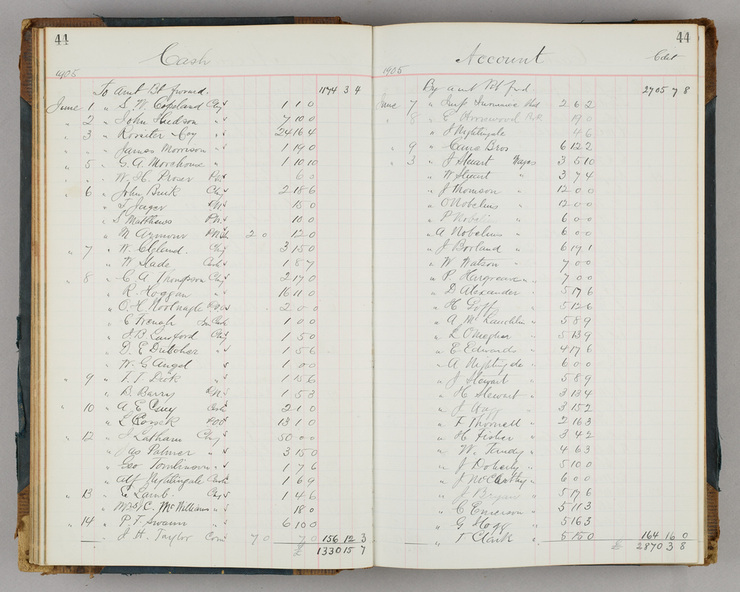 44
Cash
1905
To Amt Bt forward. 1174 3 4
June 1 " S. W. Copeland Chq 1 1 0
" 2 " John Hudson " 7 10 0
" 3 " Rossiter Coy " 24 16 4
" James Morrison " 1 19 0
" 5 " G. A. Morehouse " 1 10 10
" W. H. 6 0
" 6 " John Buck Chq 2 18 6
" 15 0
" S Matthews P.N. 10 0
" M Aymour 2 0 12 0
" 7 " W. Cleland Chq 3 15 0
" W. Slade Cash 1 8 7
" 8 " C A Thompson Chq 2 17 0
" R. Hoggan " 16 11 0
" O. H. 2 0 0
" E French 1 0 0
" J B Lunford Chq 1 5 0
" D. E Dutcher " 1 5 6
" W. G Angol " 1 0 0
" 9 " T. T. Dick " 1 15 6
" D. Barry P.N. 1 5 3
" 10 " A E Cash 2 1 0
" L 13 1 0
" 12 " J Latham Chq 50 0 0
" Jas Palmer " 3 15 0
" Geo Tomlinson " 1 7 6
" Alf Nightingale Cash 1 6 9
" 13 " G Lamb Chq 1 4 6
" Mrs C. McWilliams " 18 0
" 14 " P T Swann " 6 10 0
" J. H. Taylor Com 7 0 7 0 156 12 3
£ 1330 15 7
44
Account
Cdit
1905
By amt Bt fwd 2705 7 8
June 7 " Imp Insurance 2 6 2
" 8 " E 19 0
" J Nightingale 4 6
" 9 " Bros 6 12 2
" 3 " J Stuart Wages 3 5 10
" W Stuart " 3 7 4
" J Thomson " 12 0 0
" O Nobelius " 12 0 0
" P Nobelius " 6 0 0
" A Nobelius " 6 0 0
" J Borland " 6 17 1
" W Watson " 7 0 0
" P Hargreaves " 7 0 0
" D Alexander " 5 17 6
" H Goff " 5 12 6
" A McLaughlin " 5 8 9
" L O'Meagher " 5 13 9
" E Edwards " 4 17 6
" A Nightingale " 6 0 0
" J Stewart " 5 8 9
" H Stewart " 3 13 4
" J Way " 3 15 2
" F Thornell " 2 16 3
" H Fisher " 3 4 2
" W. Tandy " 4 6 3
" J Doherty " 5 10 0
" J McCarthy " 6 0 0
" J Bryan " 5 17 6
" C Emerson " 5 11 3
" G Hogg " 5 16 3
" T Clark " 5 15 0 164 16 0
£ 2870 3 8